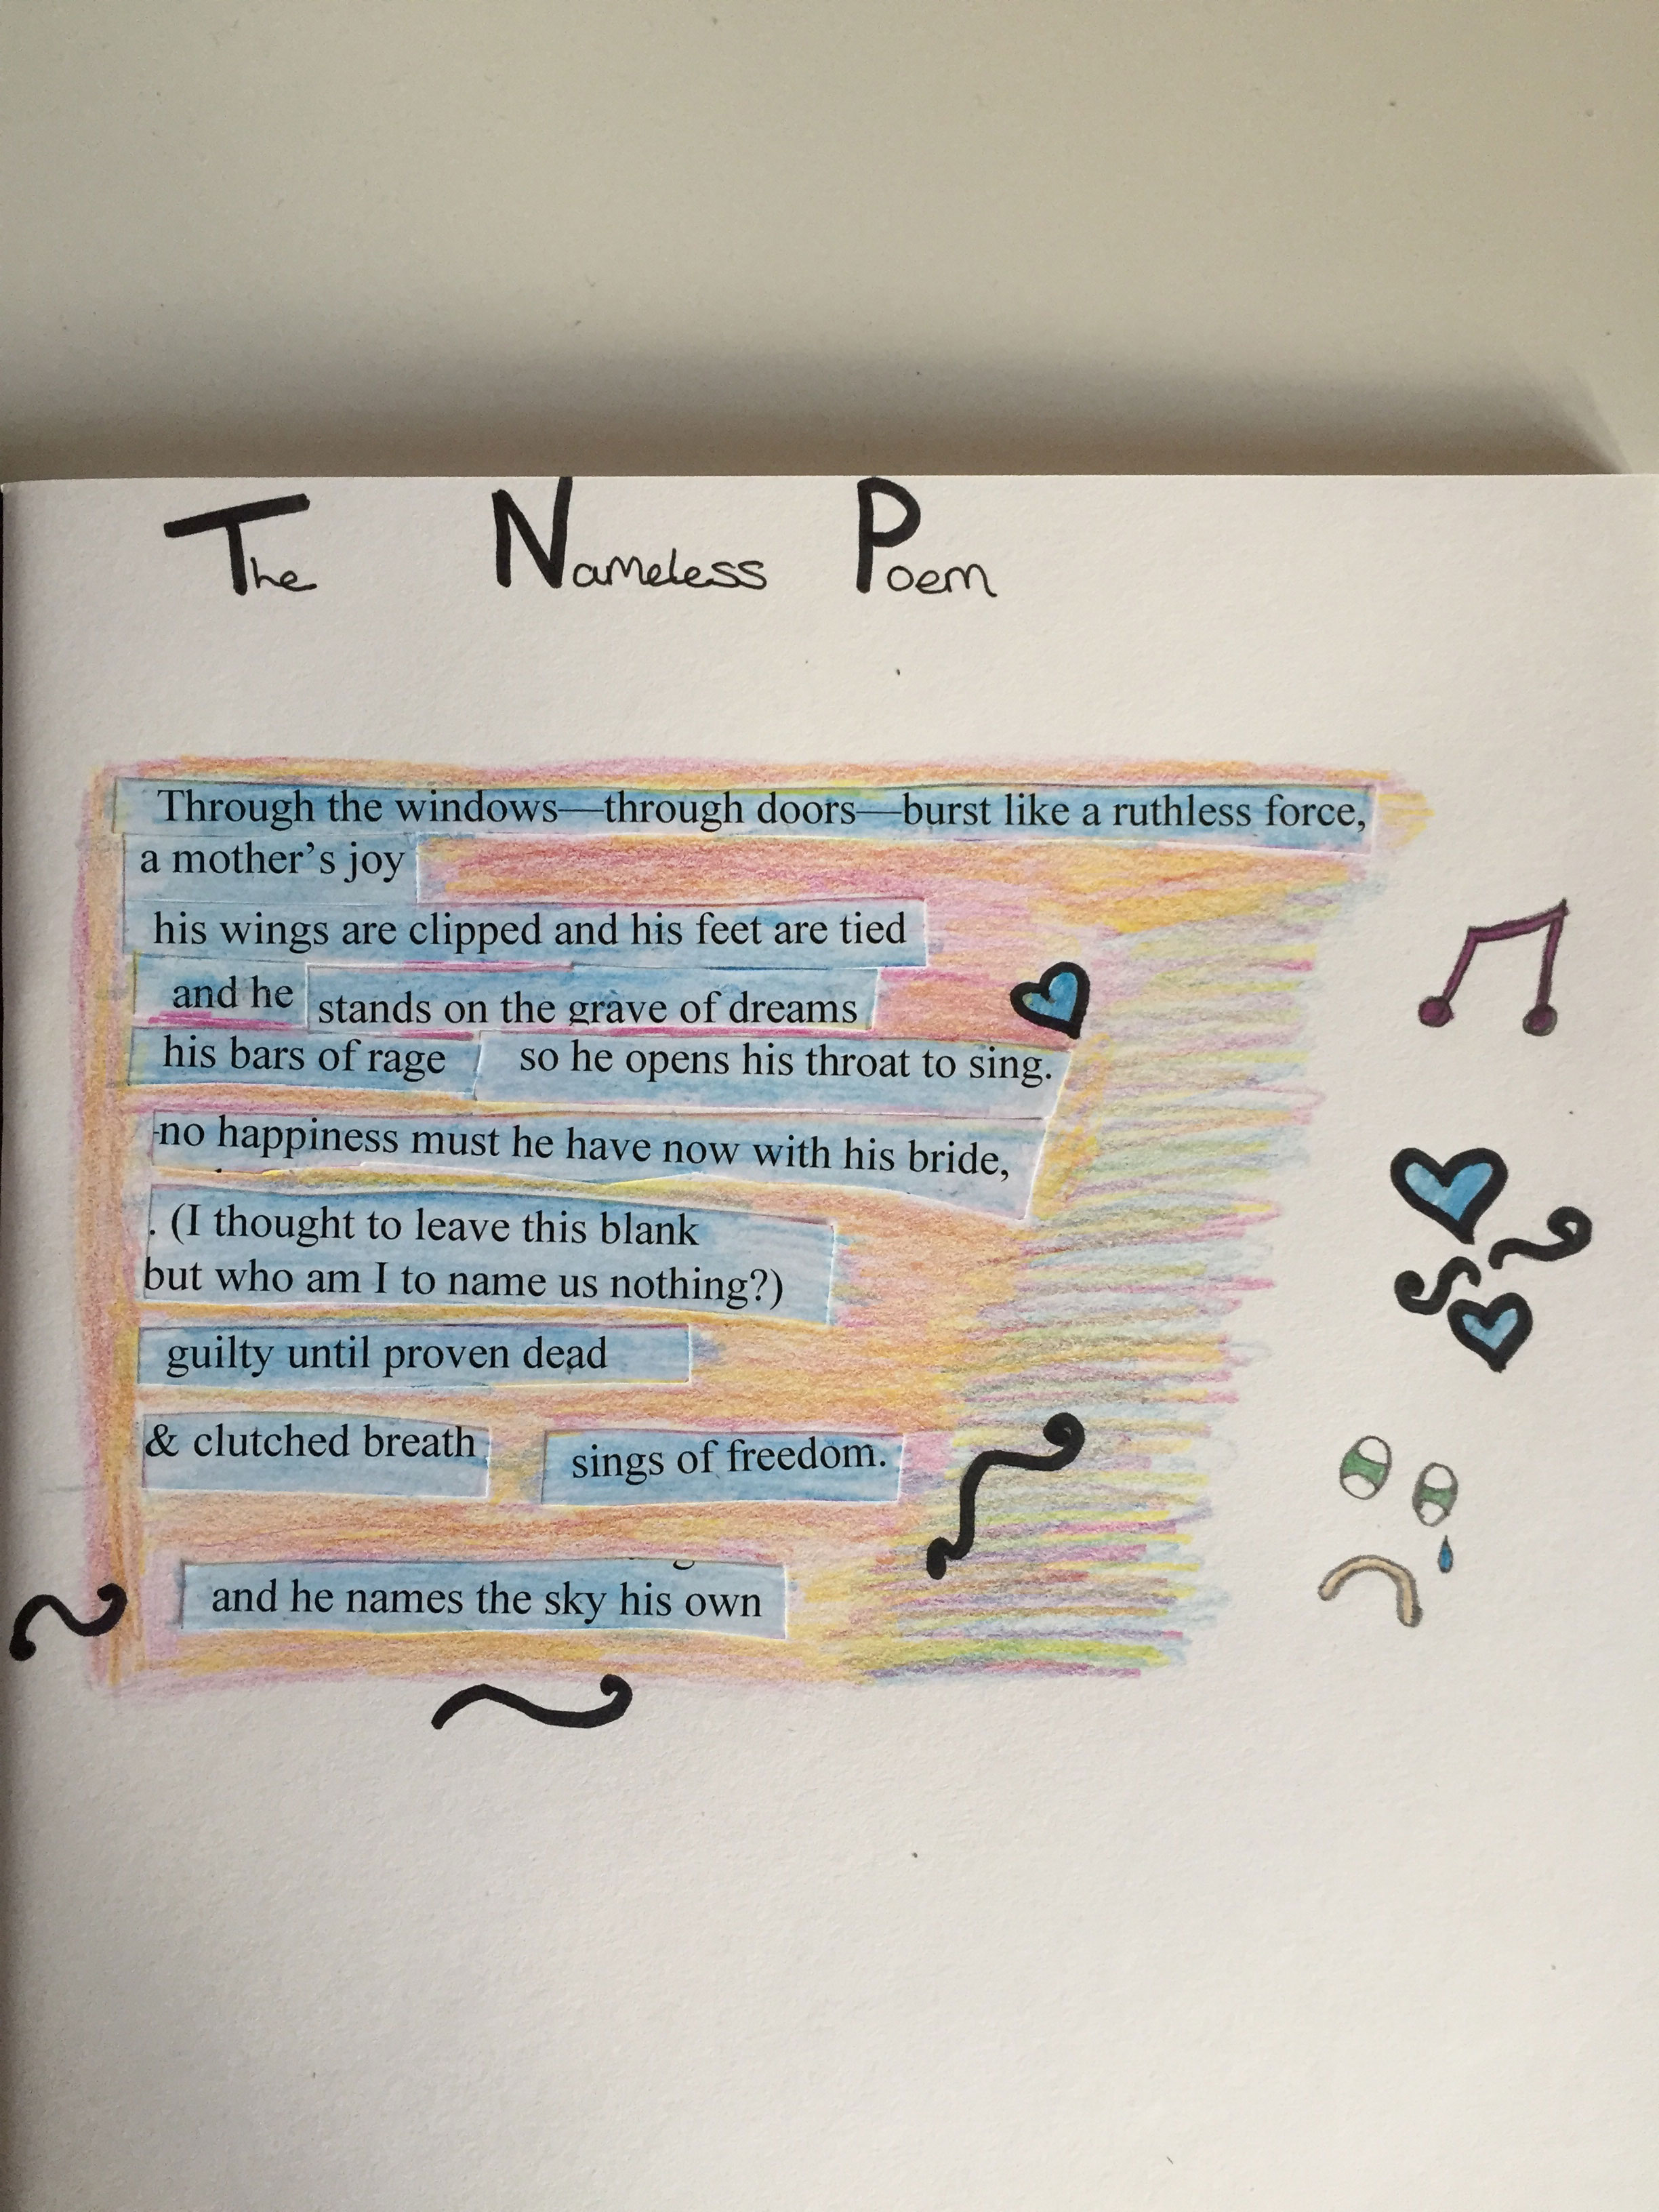 The Nameless Poem
Through the windows—through doors—burst like a ruthless force,
a mother's joy
his wings are clipped and his feet are tied
and he stands on the grave of dreams
his bars of rage so he opens his throat to sing.
-no happiness must he have now with his bride,
. (I thought to leave this blank
but who am I to name us nothing?)
guilty until proven dead
& clutched breath sings of freedom.
and he names the sky his own